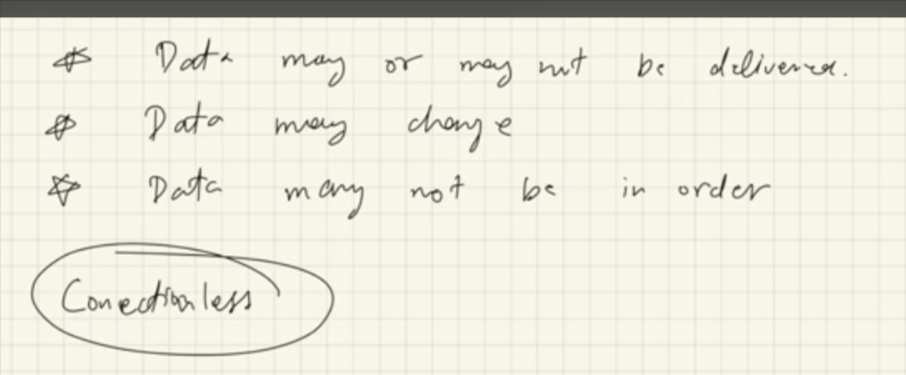 ☆ Data may or may not be delivered.
☆ Data may change
☆ Data many not be in order
Conectionless